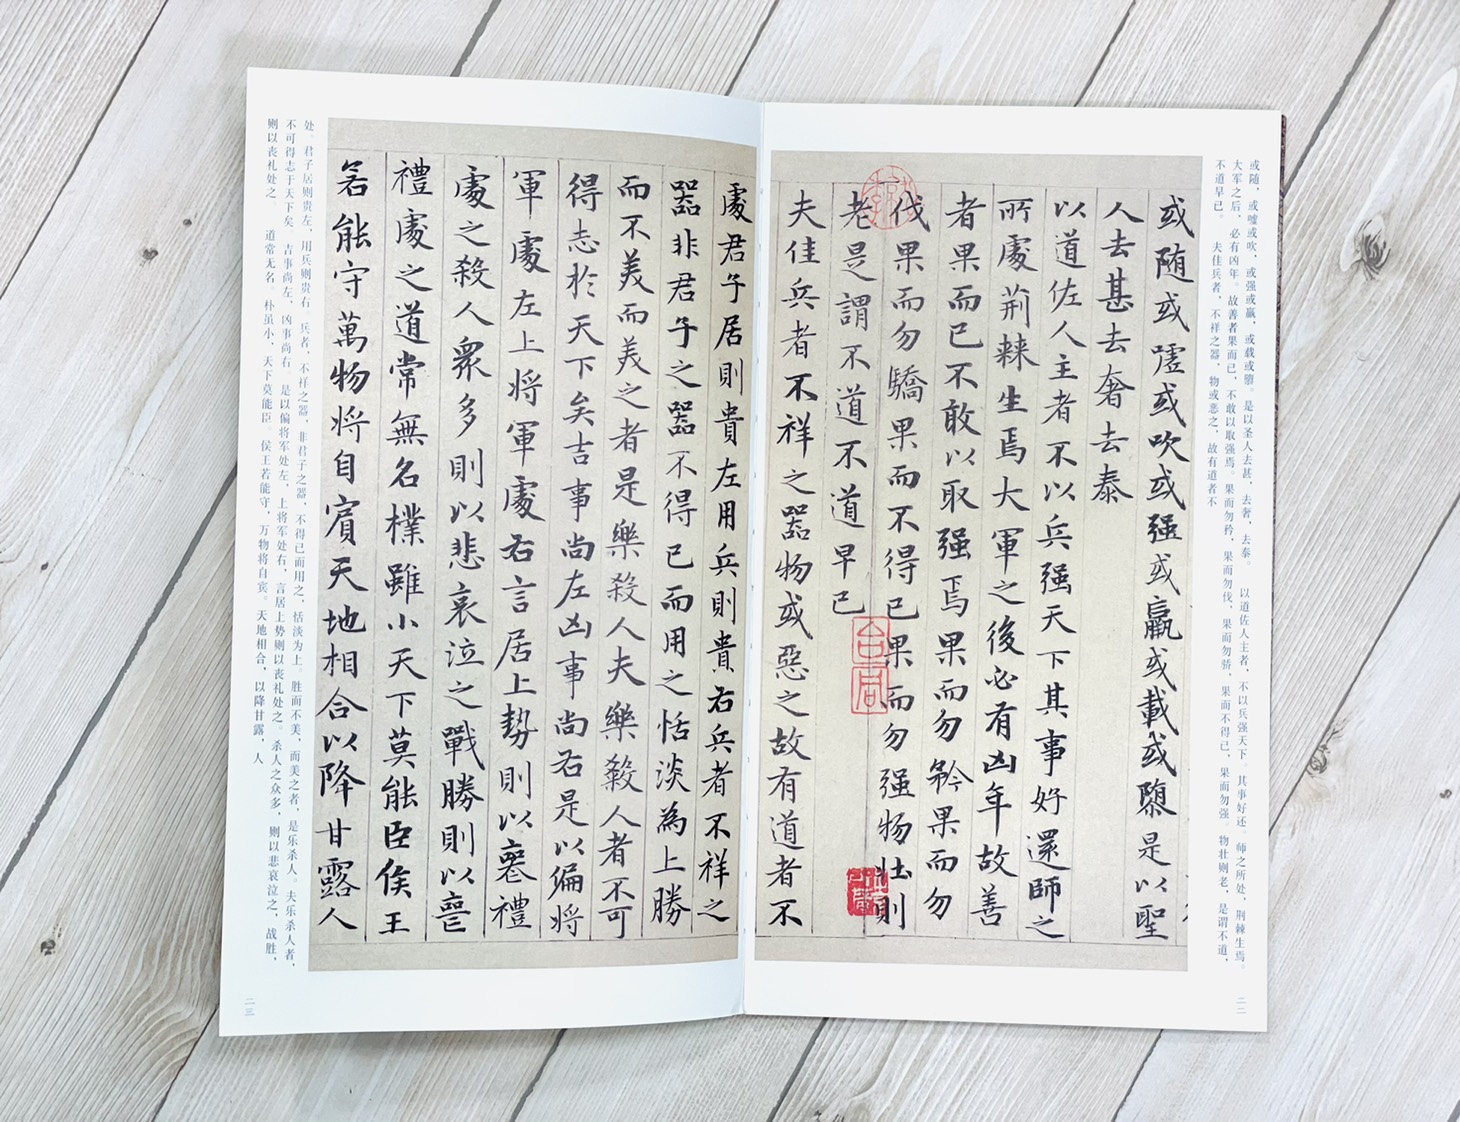 或随、或嘘或吹、或强或羸、或载或隳。是以圣人去甚、去奢、去泰。 以道佐人主者、不以兵强天下。其事好还、师之所处、荆棘生焉。
大军之后、必有凶年。故善者果而已、不敢以取强焉。果而勿矜、果而勿伐、果而勿骄、果而不得已、果而勿强 物壮则老、是谓不道、
不道早已。 夫佳兵者、不祥之器、物或恶之、故有道者不
或随或嘘或吹或强或羸或載或隳是以聖
人去甚去奢去泰
以道佐人主者不以兵强天下其事好還師之
所處荆棘生焉大軍之後必有凶年故善
者果而已不敢以取强焉果而勿矜果而勿
伐果而勿驕果而不得已果而勿强物壮則
老是謂不道不道早已
夫佳兵者不祥之器物或惡之故有道者不
二二
處君子居則貴左用兵則貴右兵者不祥之
器非君子之器不得已而用之恬淡為上勝
而不美而美之者是樂殺人夫樂殺人者不可
得志於天下矣吉事尚左凶事尚右是以偏將
軍處左上將軍處右言居上勢則以喪禮
處之殺人衆多則以悲哀泣之戰勝則以喪
禮處之道常無名樸雖小天下莫能臣侯王
若能守萬物將自賓天地相合以降甘露人
处。君子居则贵左、用兵则贵右。兵者、不祥之器、非君子之器、不得已而用之、恬淡为上。胜而不美、而美之者、是乐杀人。夫乐杀人者、
不可得志于天下矣。吉事尚左、凶事尚右。是以偏将军处左、上将军处右、言居上势则以丧礼处之。杀人之众多、则以悲哀泣之、战胜、
则以丧礼处之。 道常无名。朴虽小、天下莫能臣。侯王若能守、万物将自宾。天地相合、以降甘露、人
二三